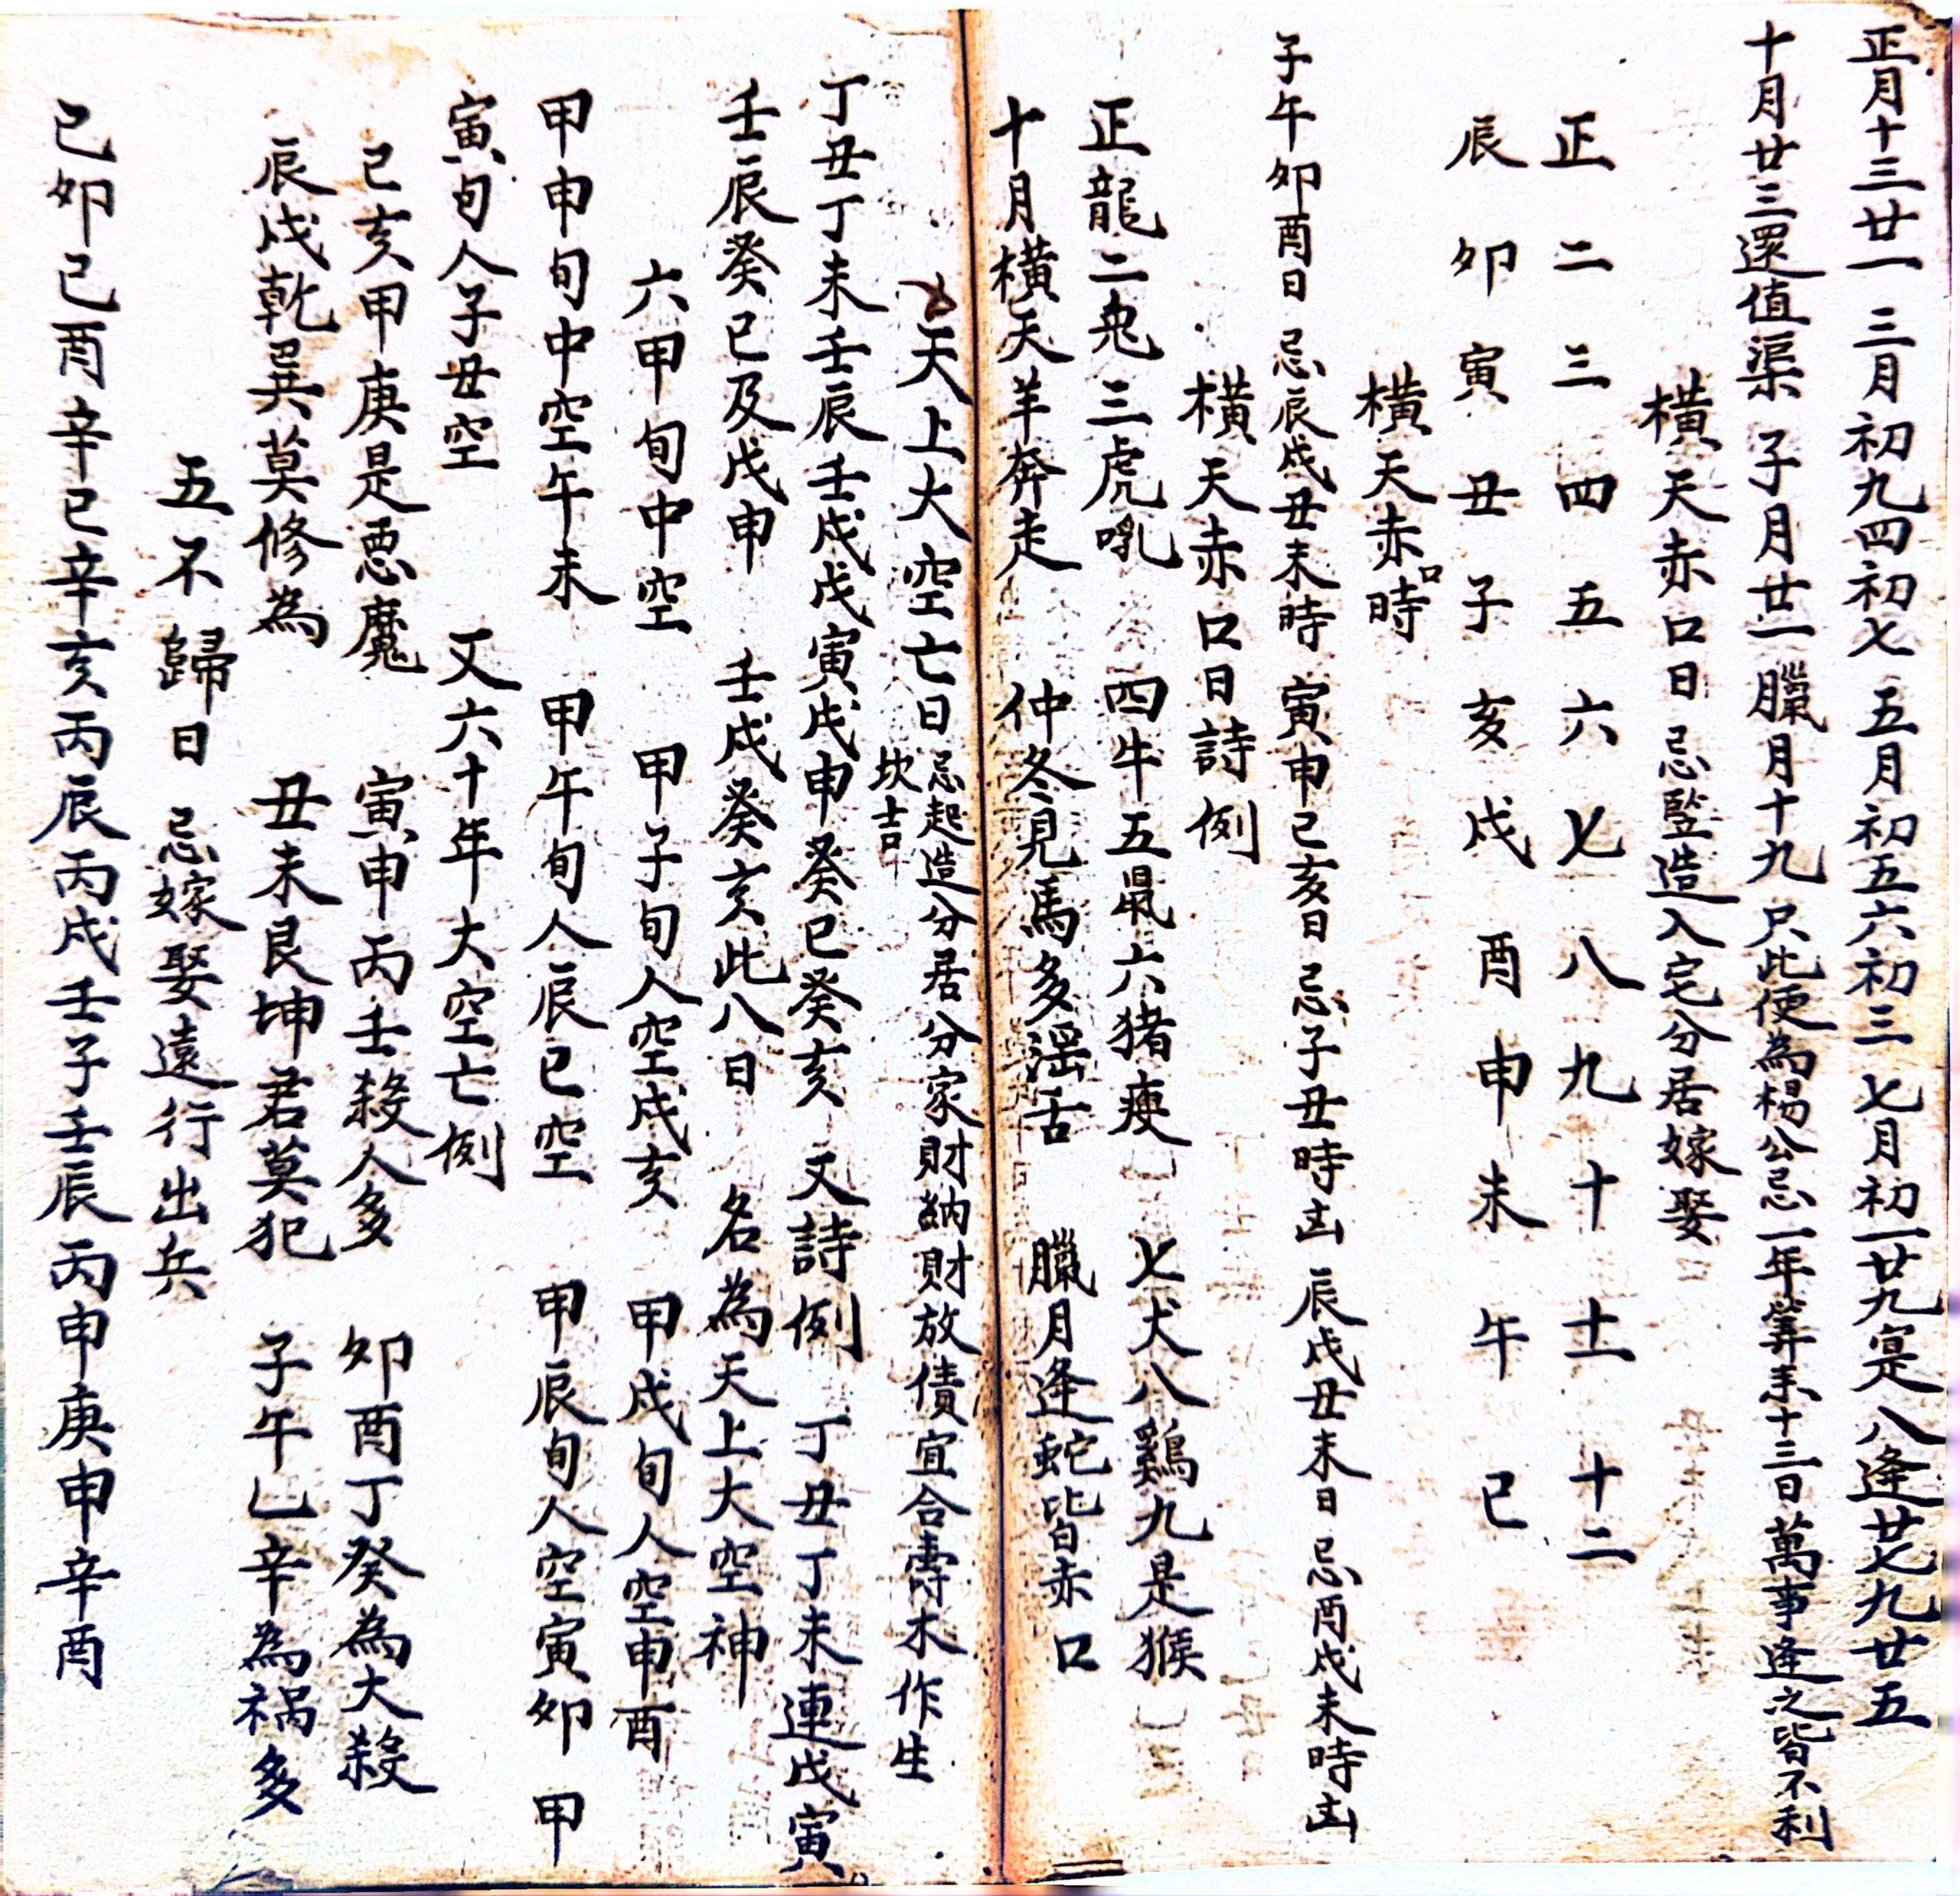 正月十三廿一 三月初九四初七 五月初五六初三 七月初一廿九寔 八逢廿七九廿五
十月廿三還值渠 子月廿一臘月十九 只此便為楊公忌 一年筭來十三日 萬事逢之皆不利
橫天赤口日 忌豎造入宅分居嫁娶
正 二 三 四 五 六 七 八 九 十 十一 十二
辰 卯 寅 丑 子 亥 戌 酉 申 未 午 巳
橫天赤口時
子午卯酉日 忌辰戌丑未時 寅申巳亥日 忌子丑時凶 辰戌丑未日 忌酉戌未時凶
橫天赤口日詩例
正龍二兎三虎吼 四牛五鼠六猪瘦 七犬八鷄九是猴
十月橫天羊奔走 仲冬見馬多滛舌 臘月逢蛇皆赤口
天上大空亡日 忌起造分居分家財納財放債宜合壽木作生
坎吉
丁丑丁未壬辰壬戌戊寅戊申癸巳癸亥 又詩例 丁丑丁未連戊寅
壬辰癸巳及戊申 壬戌癸亥此八日 名為天上大空神
六甲旬中空 甲子旬人空戌亥 甲戌旬人空申酉
甲申旬中空午未 甲午旬人辰巳空 甲辰旬人空寅卯 甲
寅旬人子丑空 又六十年大空亡例
巳亥甲庚是悪魔 寅申丙壬殺人多 卯酉丁癸為大殺
辰戌乾巽莫修為 丑未艮坤君莫犯 子午乙辛為禍多
五不歸日 忌嫁娶遠行出兵
己卯己酉辛巳辛亥丙辰丙戌壬子壬辰丙申庚申辛酉